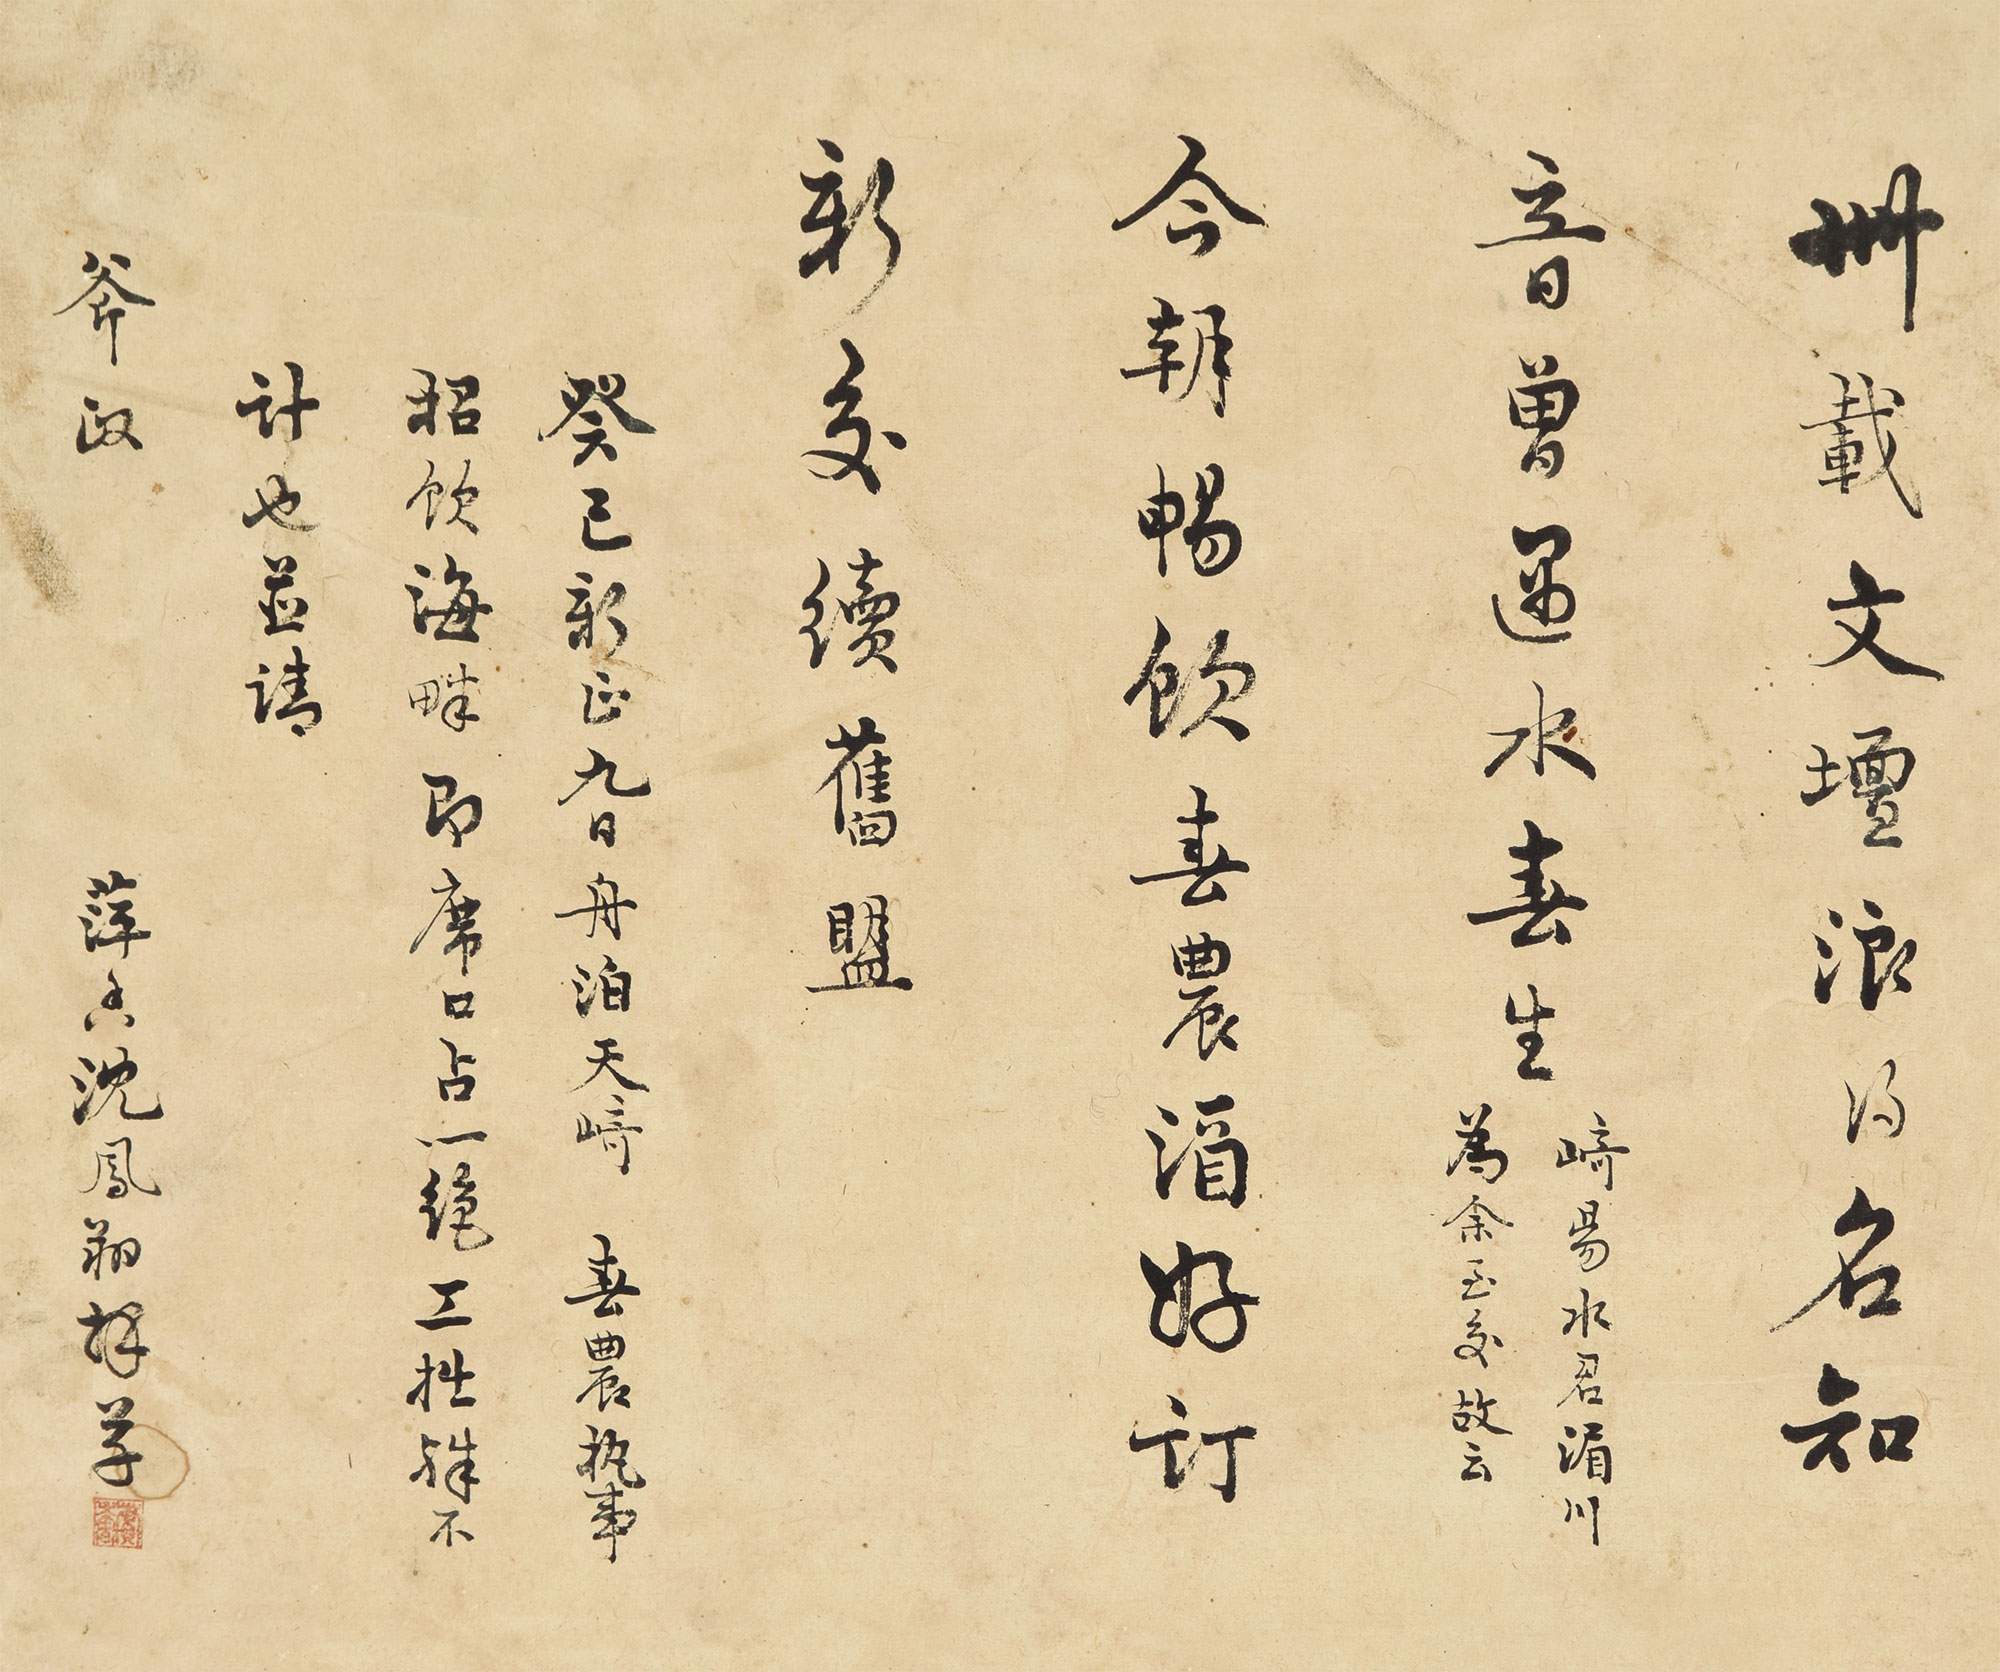 卌載文壇浪得名知
音曾遇水春生
崎陽水君湄川
為余至交故云
今朝暢飲春農酒好訂
新交續舊盟
癸巳新正九日舟泊天崎 春農執事
招飲海畔即席口占一絕工拙殊不
計也並請
斧政 萍香沈鳳翔拜草